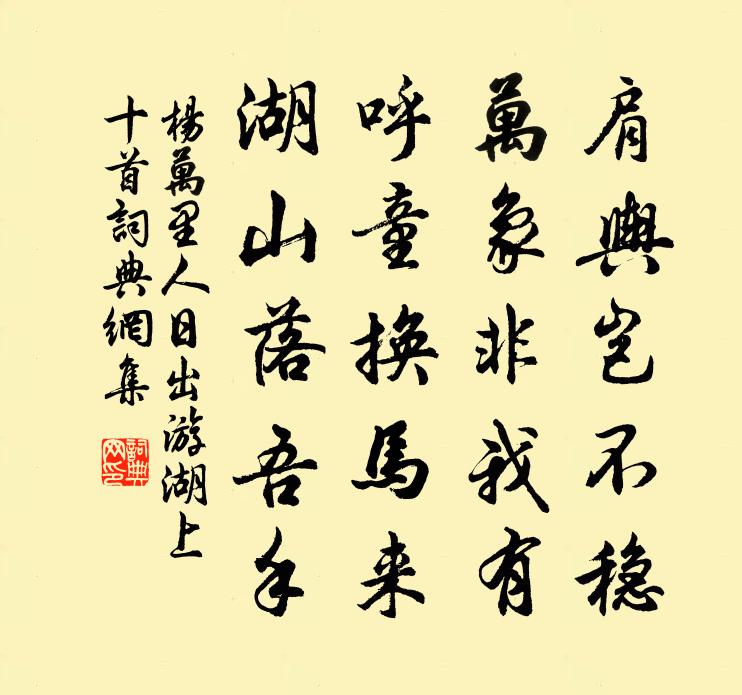 肩輿豈不穩
萬象非我有
呼童換馬来
湖山落吾手
楊萬里人日出游湖上
十首詞典網集
詞典
网印